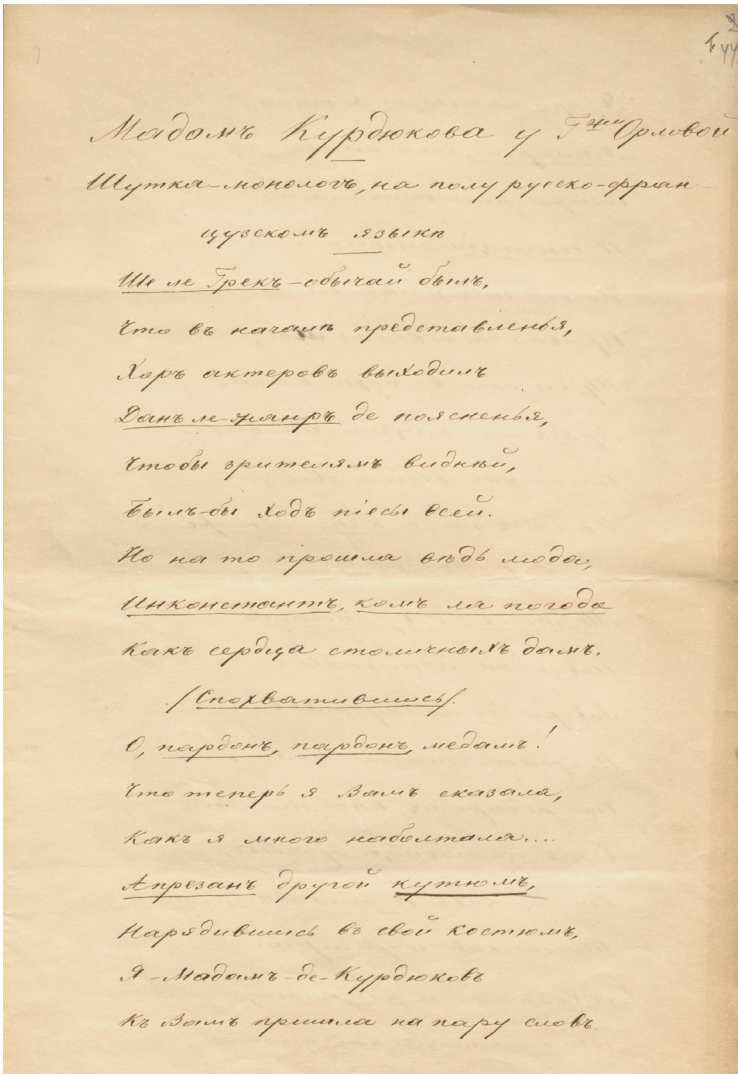 Мадамъ Курдюкова у Г-жи Орловой
Шутка-монологъ, на полу русско-фран
цузскомъ языкѣ
Ше ле Грекъ-обычай былъ,
Что въ началѣ представленья,
Хоръ актеровъ выходилъ
Данъ ле-жанръ де поясненья,
Чтобы зрителямъ виднѣй,
Былъ-бы ходъ піесы всей.
Но на то прошла вѣдь мода,
Инконстантъ, комъ ла погода
Какъ сердца столичныхъ дамъ.
/Спохватившись/.
О, пардонъ, пардонъ, медамъ!
Что теперь я Вамъ сказала,
Какъ я много наболтала...
Апрезанъ другой кутюмъ,
Нарядившись въ свой костюмъ,
Я-Мадамъ-де-Курдюковъ
Къ Вамъ пришла на пару словъ